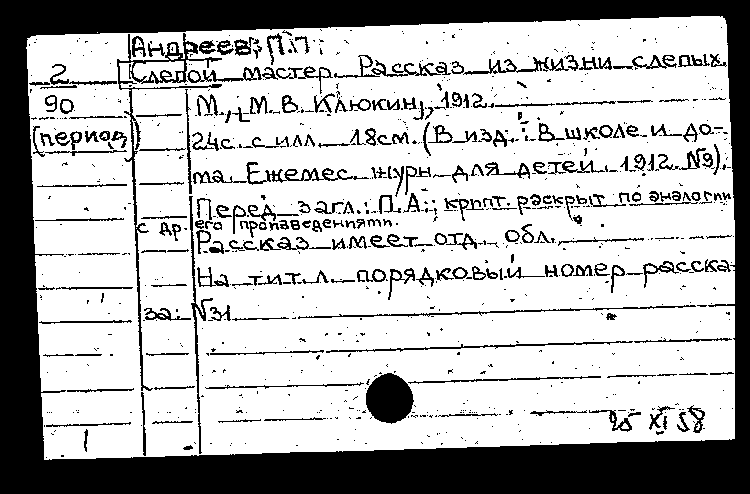 Андреев, П.П.
2 [Слепой мастер. Рассказ из жизни слепых.
90 М., [М.В. Клюкин], 1912.
(период.) 24с. с илл. 18см. (В изд.: В школе и до-
ма. Ежемес. журн. для детей. 1912. №9).
Перед загл.: П.А.; крипт. раскрыт по аналогии
с др. его произведениями.
Рассказ имеет отд. обл.
На тит. л. порядковый номер расска-
за: №31
25 XI 58
1